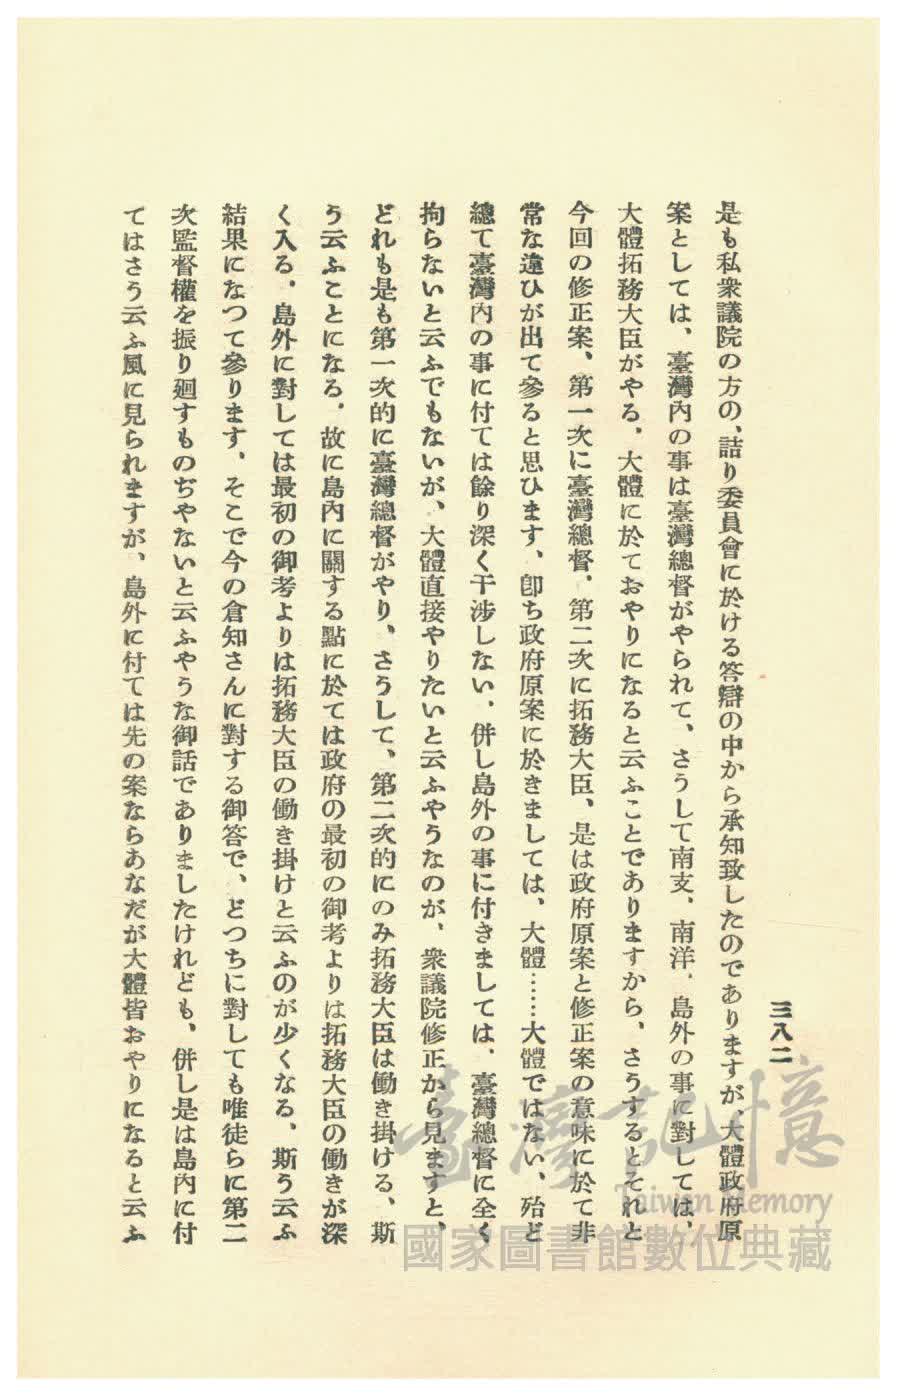 三八二
是も私衆議院の方の、詰り委員會に於ける答辯の中から承知致したのでありますが、大體政府原
案としては、臺灣內の事は臺灣總督がやられて、さうして南支、南洋、島外の事に對しては、
大體拓務大臣がやる、大體に於ておやりになると云ふことでありますから、さうするとそれと
今回の修正案、第一次に臺灣總督、第二次に拓務大臣、是は政府原案と修正案の意味に於て非
常な違ひが出て參ると思ひます、卽ち政府原案に於きましては、大體……大體ではない、殆ど
總て臺灣內の事に付ては餘り深く干涉しない、併し島外の事に付きましては、臺灣總督に全く
拘らないと云ふでもないが、大體直接やりたいと云ふやうなのが、衆議院修正から見ますと、
どれも是も第一次的に臺灣總督がやり、さうして、第二次的にのみ拓務大臣は働き掛ける、斯
う云ふことになる、故に島內に關する點に於ては政府の最初の御考よりは拓務大臣の働きが深
く入る、島外に對しては最初の御考よりは拓務大臣の働き掛けと云ふのが少くなる、斯う云ふ
結果になつて參ります、そこで今の倉知さんに對する御答で、どつちに對しても唯徒らに第二
次監督權を振り廻すものぢやないと云ふやうな御話でありましたけれども、併し是は島內に付
てはさう云ふ風に見られますが、島外に付ては先の案ならあなだが大體皆おやりになると云ふ
臺灣記憶
Taiwan Memory
國家圖書館數位典藏